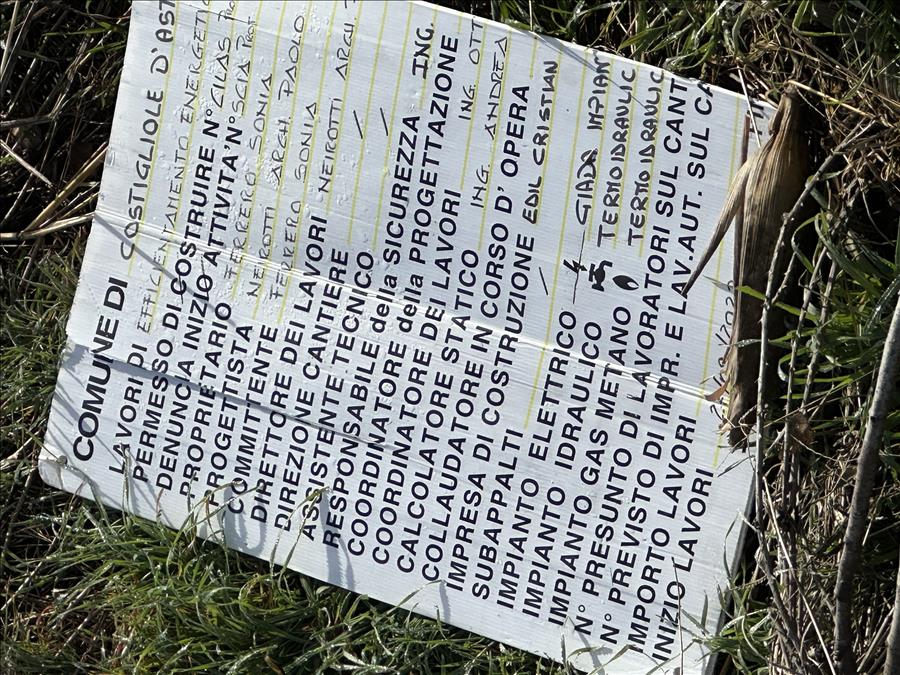 COMUNE DI COSTIGLIOLE D'AST
LAVORI DI EFFICIENTAMENTO ENERGETIC
PERMESSO DI COSTRUIRE N° CILAS PROT
DENUNCIA INIZIO ATTIVITA' N° SCIA PROT
PROPRIETARIO FERRERO SONIA
PROGETTISTA NEIROTTI ARCH PAOLO
COMMITTENTE FERRERO SONIA
DIRETTORE DEI LAVORI NEIROTTI ARCH
DIREZIONE CANTIERE
ASSISTENTE TECNICO
RESPONSABILE della SICUREZZA ING.
COORDINATORE della PROGETTAZIONE
COORDINATORE DEI LAVORI ING. OTT
CALCOLATORE STATICO ING. ANDREA
COLLAUDATORE IN CORSO D'OPERA
IMPRESA DI COSTRUZIONE EDIL CRISTIAN
SUBAPPALTI
IMPIANTO ELETTRICO GIADA IMPIANT
IMPIANTO IDRAULICO TERMOIDRAULIC
IMPIANTO GAS METANO TERMOIDRAULIC
N° PRESUNTO DI LAVORATORI SUL CANT
N° PREVISTO DI IMPR. E LAV.AUT. SUL CA
IMPORTO LAVORI
INIZIO LAVORI